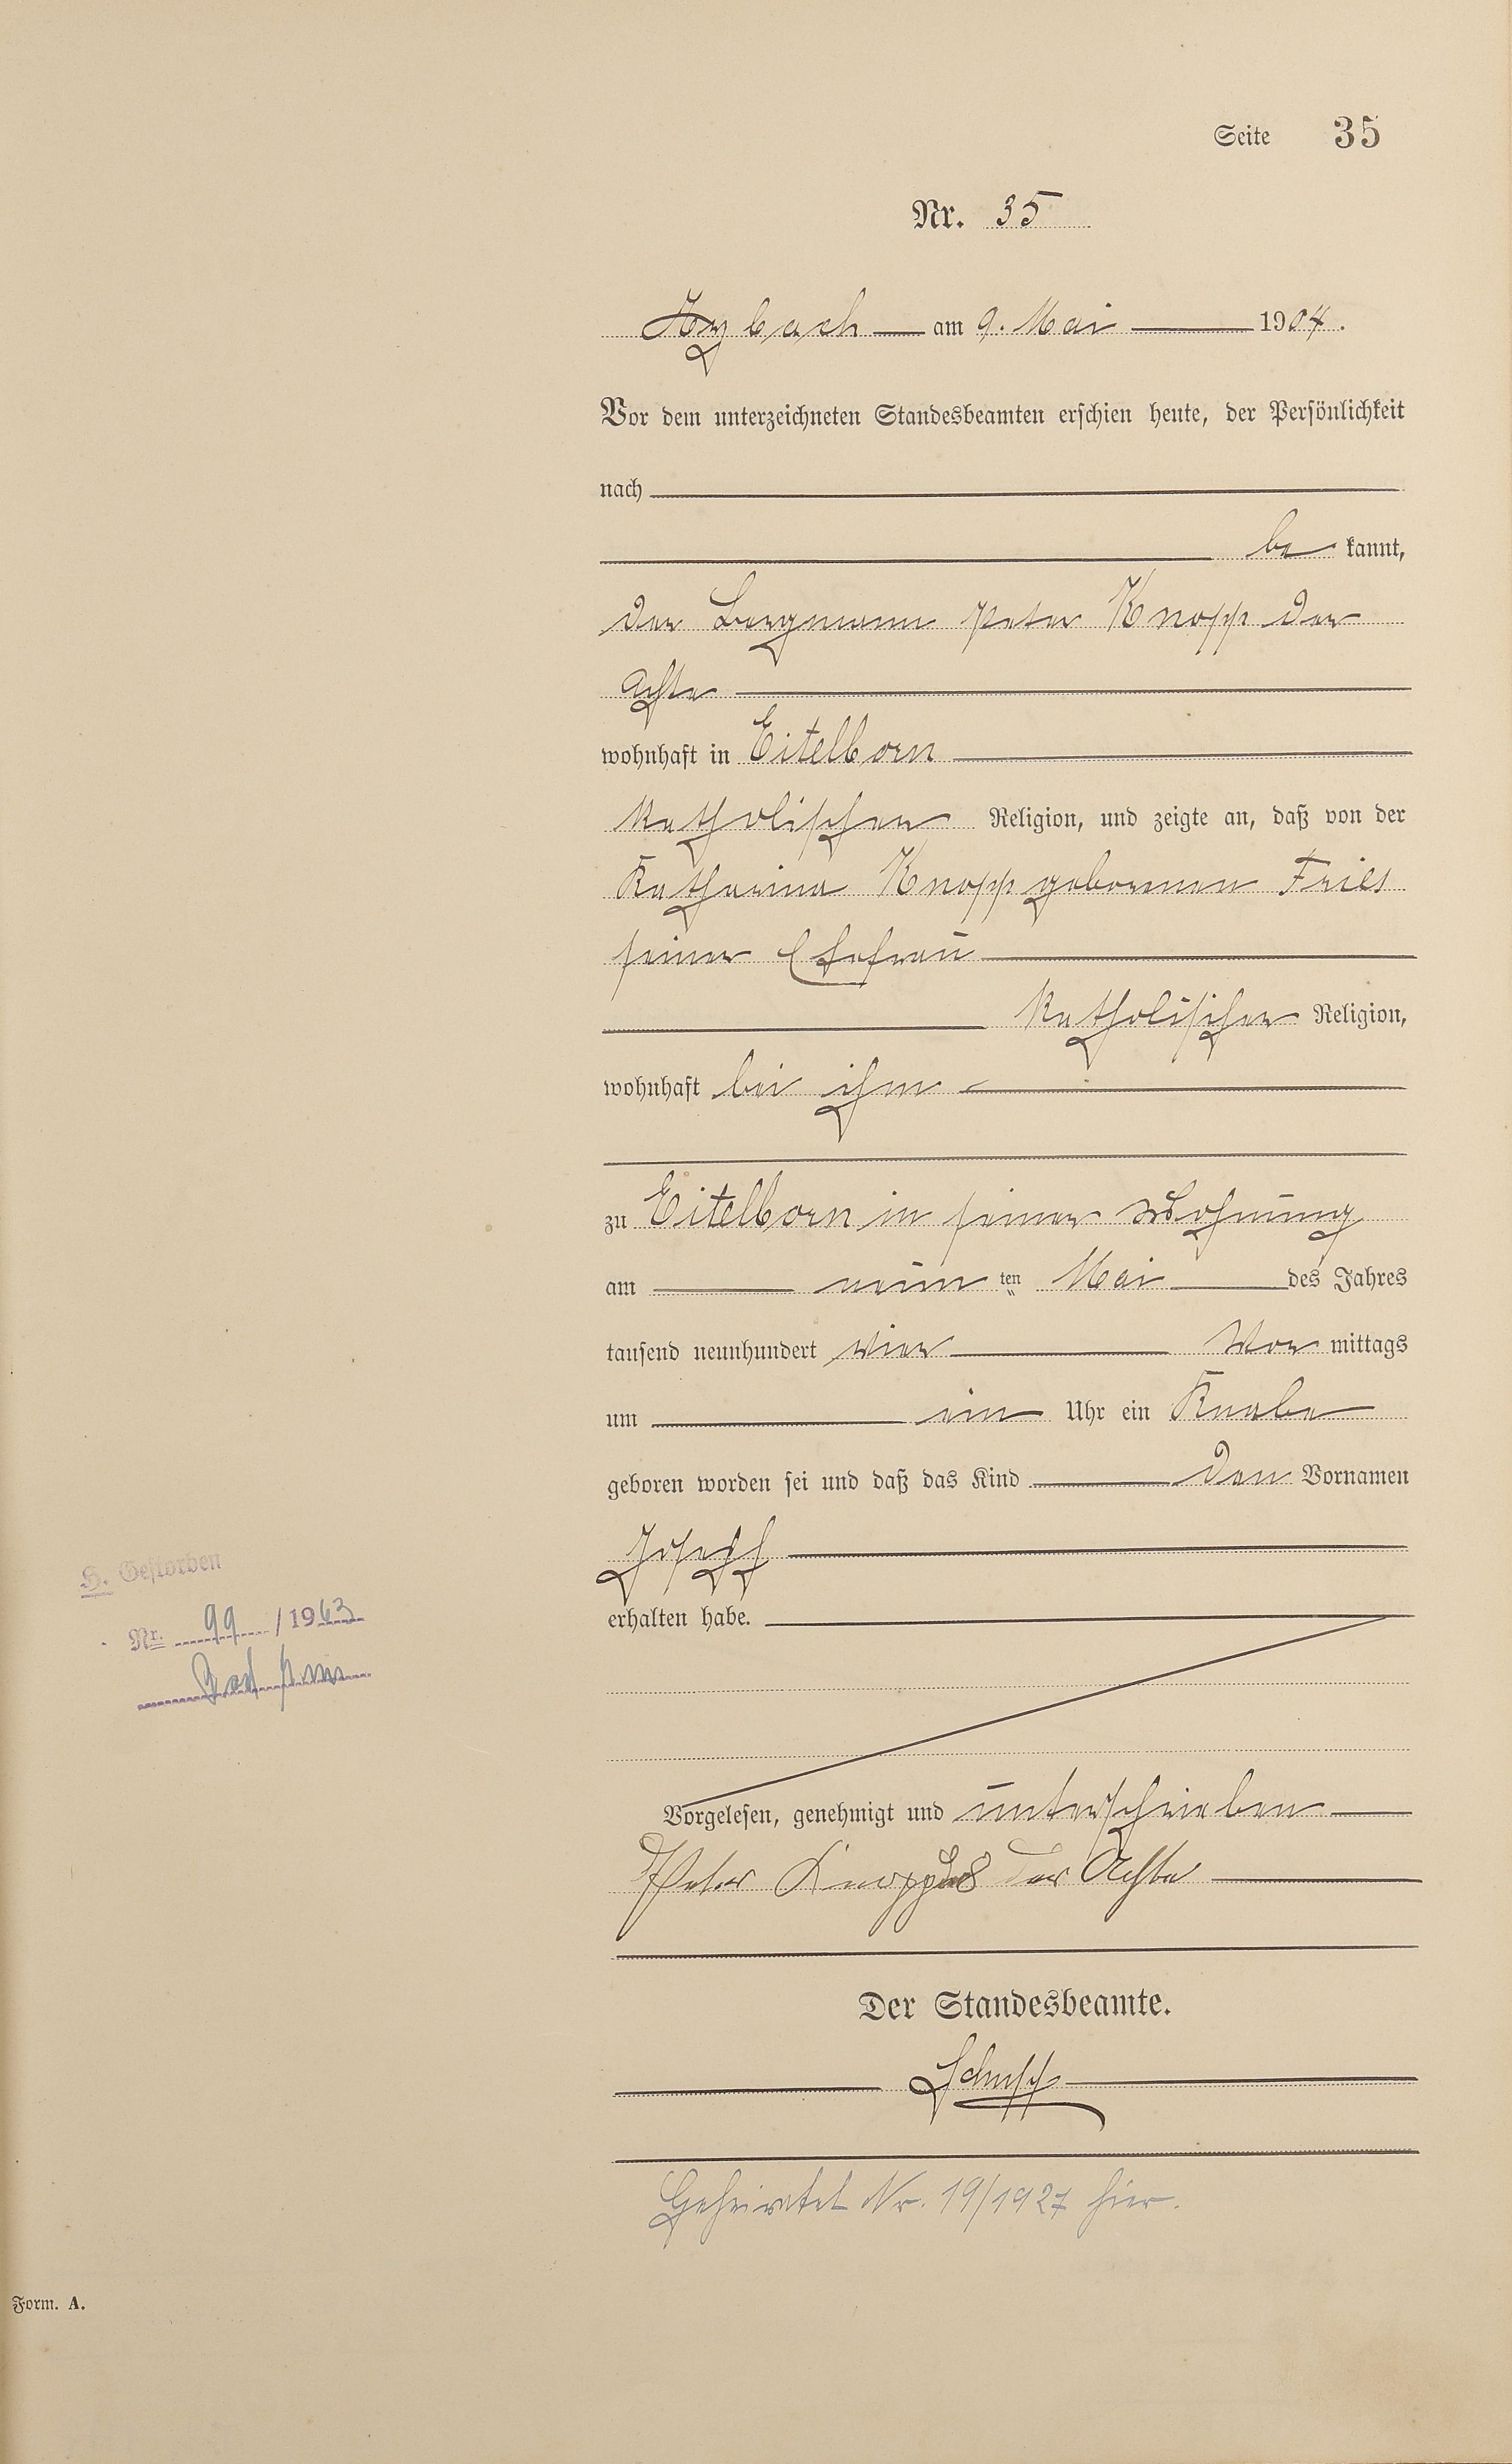 Seite 35
Nr. 35
Arzbach am 9. Mai 1904.
Vor dem unterzeichneten Standesbeamten erschien heute, der Persönlichkeit
nach
be kannt,
der Bergmann Peter Knopp der
Achte
wohnhaft in Eitelborn
katholischer Religion, und zeigte an, daß von der
Katharina Knopp geborenen Fries
seiner Ehefrau
katholischer Religion,
wohnhaft bei ihm
zu Eitelborn in seiner Wohnung
am neun ten Mai des Jahres
tausend neunhundert vier Vor mittags
um ein Uhr ein Knabe
geboren worden sei und daß das Kind den Vornamen
Joseph
erhalten habe.
H. Gestorben
Nr. 99 / 1963
Vorgelesen, genehmigt und unterschrieben
Peter Knopp der Achte
Der Standesbeamte.
Schupp
Geheiratet Nr. 19/1927 hier.
Form. A.